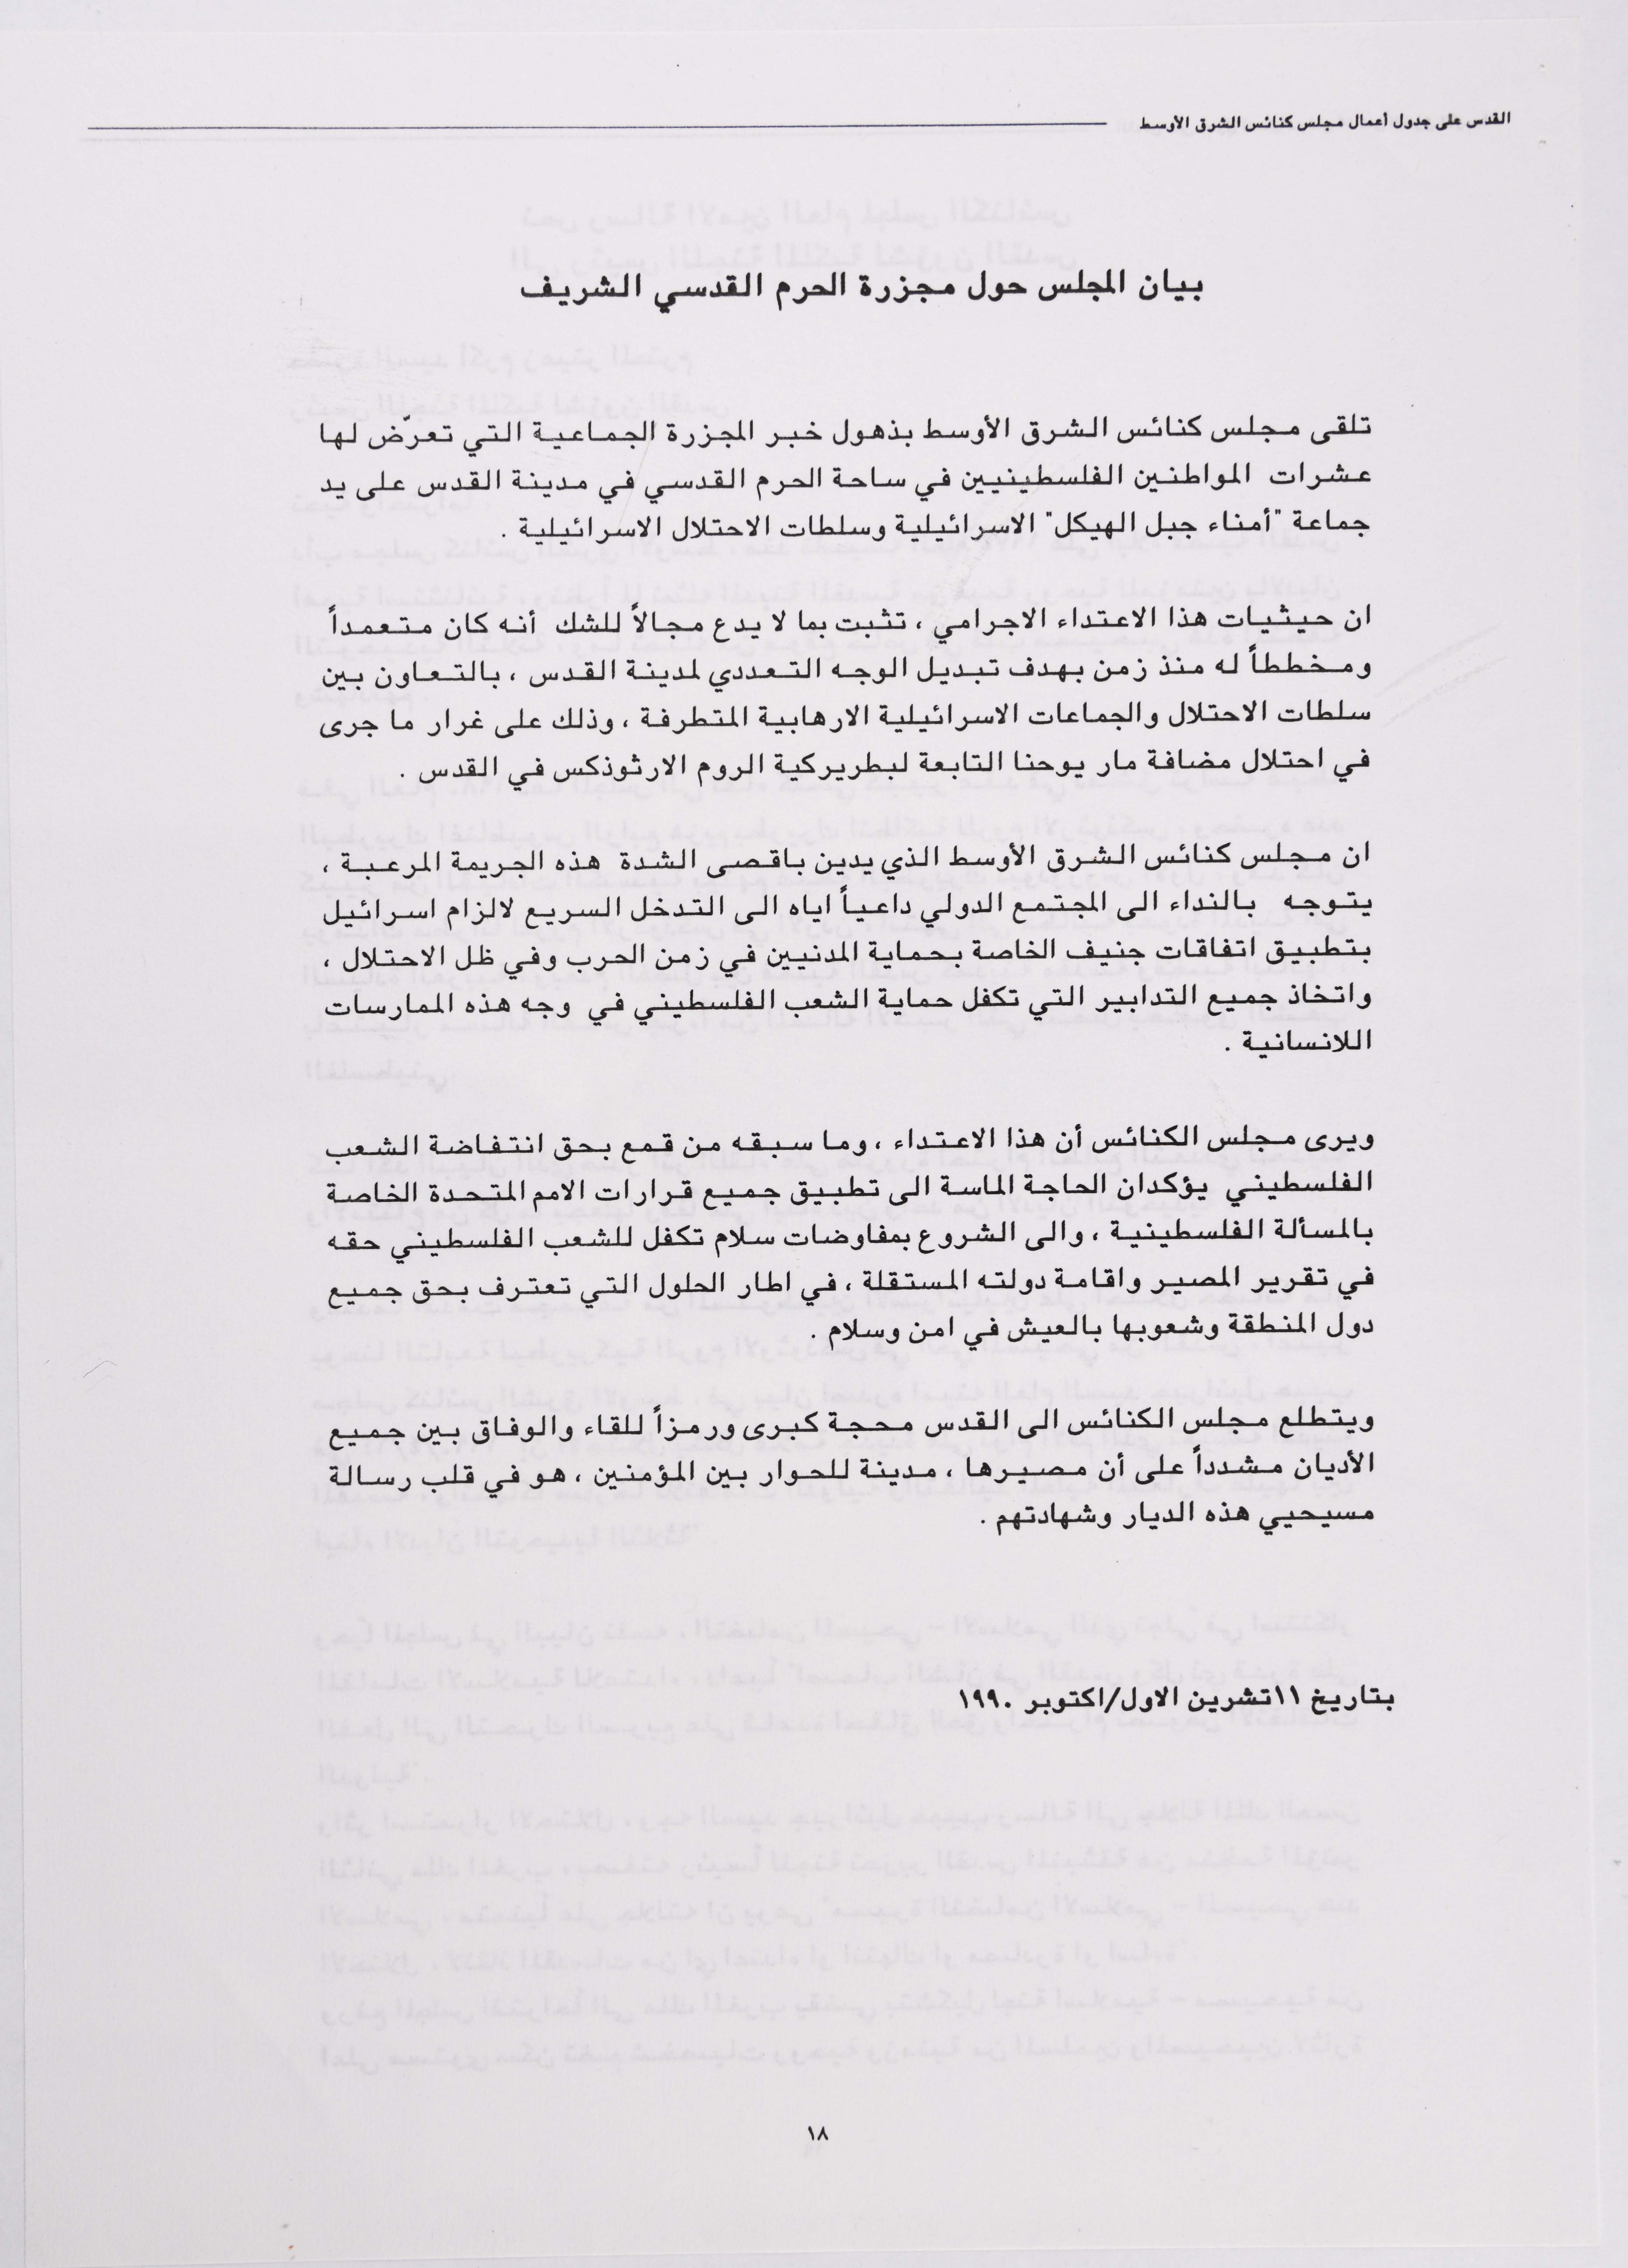 القدس على جدول أعمال مجلس كنائس الشرق الأوسط
بيان المجلس حول مجزرة الحرم القدسي الشريف
تلقى مجلس كنائس الشرق الأوسط بذهول خبر المجزرة الجماعية التي تعرّض لها
عشرات المواطنين الفلسطينيين في ساحة الحرم القدسي في مدينة القدس على يد
جماعة "أمناء جبل الهيكل" الاسرائيلية وسلطات الاحتلال الاسرائيلية .
ان حيثيات هذا الاعتداء الاجرامي ، تثبت بما لا يدع مجالاً للشك أنه كان متعمداً
ومخططاً له منذ زمن بهدف تبديل الوجه التعددي لمدينة القدس ، بالتعاون بين
سلطات الاحتلال والجماعات الاسرائيلية الارهابية المتطرفة ، وذلك على غرار ما جرى
في احتلال مضافة مار يوحنا التابعة لبطريركية الروم الارثوذكس في القدس .
ان مجلس كنائس الشرق الأوسط الذي يدين باقصى الشدة هذه الجريمة المرعبة ،
يتوجه بالنداء الى المجتمع الدولي داعياً اياه الى التدخل السريع لالزام اسرائيل
بتطبيق اتفاقات جنيف الخاصة بحماية المدنيين في زمن الحرب وفي ظل الاحتلال ،
واتخاذ جميع التدابير التي تكفل حماية الشعب الفلسطيني في وجه هذه الممارسات
اللانسانية .
ويرى مجلس الكنائس أن هذا الاعتداء ، وما سبقه من قمع بحق انتفاضة الشعب
الفلسطيني يؤكدان الحاجة الماسة الى تطبيق جميع قرارات الامم المتحدة الخاصة
بالمسألة الفلسطينية ، والى الشروع بمفاوضات سلام تكفل للشعب الفلسطيني حقه
في تقرير المصير واقامة دولته المستقلة ، في اطار الحلول التي تعترف بحق جميع
دول المنطقة وشعوبها بالعيش في امن وسلام .
ويتطلع مجلس الكنائس الى القدس محجة كبرى ورمزاً للقاء والوفاق بين جميع
الأديان مشدداً على أن مصيرها ، مدينة للحوار بين المؤمنين ، هو في قلب رسالة
مسيحيي هذه الديار وشهادتهم .
بتاريخ ١١تشرين الاول/اكتوبر ١٩٩٠
١٨